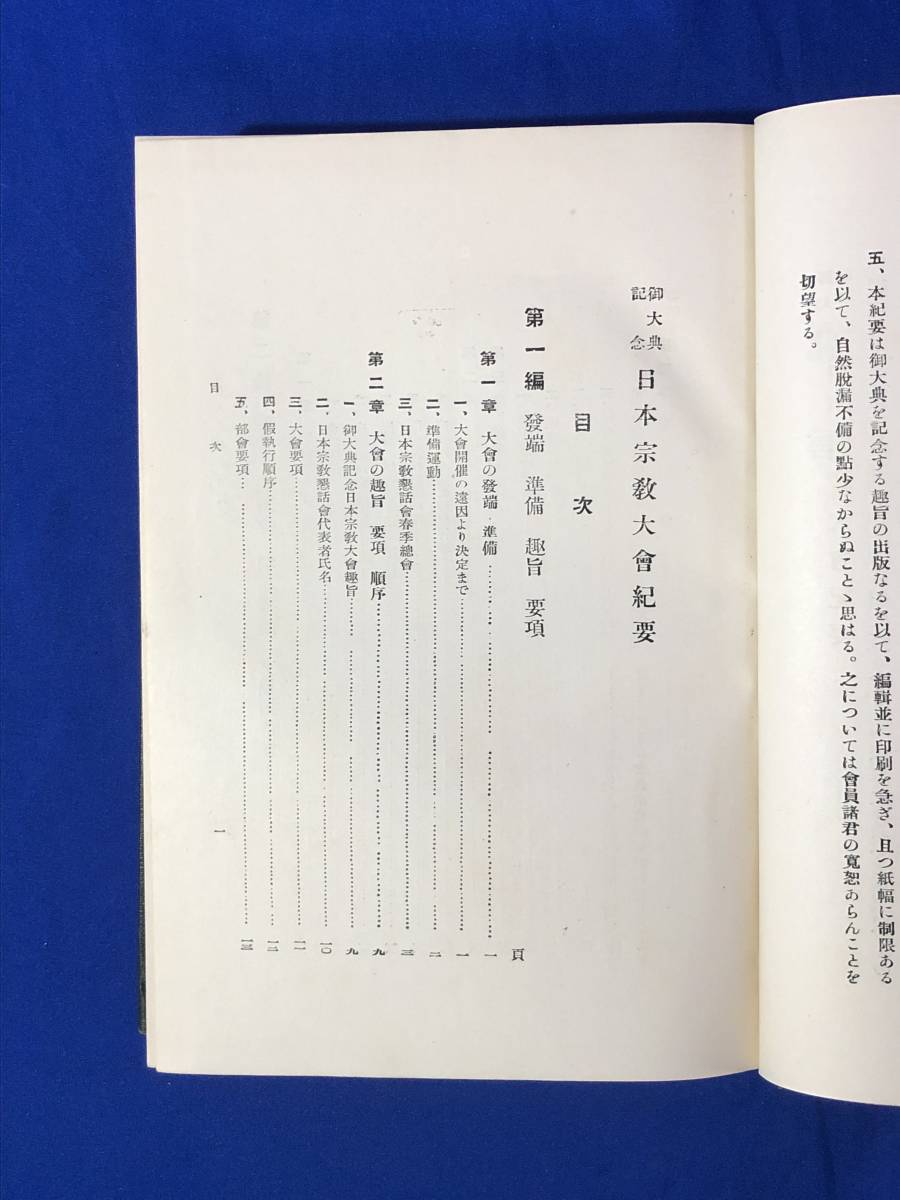 五、本紀要は御大典を記念する趣旨の出版なるを以て、編輯並に印刷を急ぎ、且つ紙幅に制限ある
を以て、自然脱漏不備の點少なからぬことゝ思はる。之については會員諸君の寬恕あらんことを
切望する。
御大典
記念
日本宗敎大會紀要
目次
第一編 發端 準備 趣旨 要項
頁
第一章 大會の發端・準備……一
一、大會開催の遠因より決定まで……一
二、準備運動……二
三、日本宗敎懇話會春季總會……三
第二章 大會の趣旨 要項 順序……九
一、御大典記念日本宗敎大會趣旨……九
二、日本宗敎懇話會代表者氏名……一〇
三、大會要項……一一
四、假執行順序……一二
五、部會要項……一三
目次
一